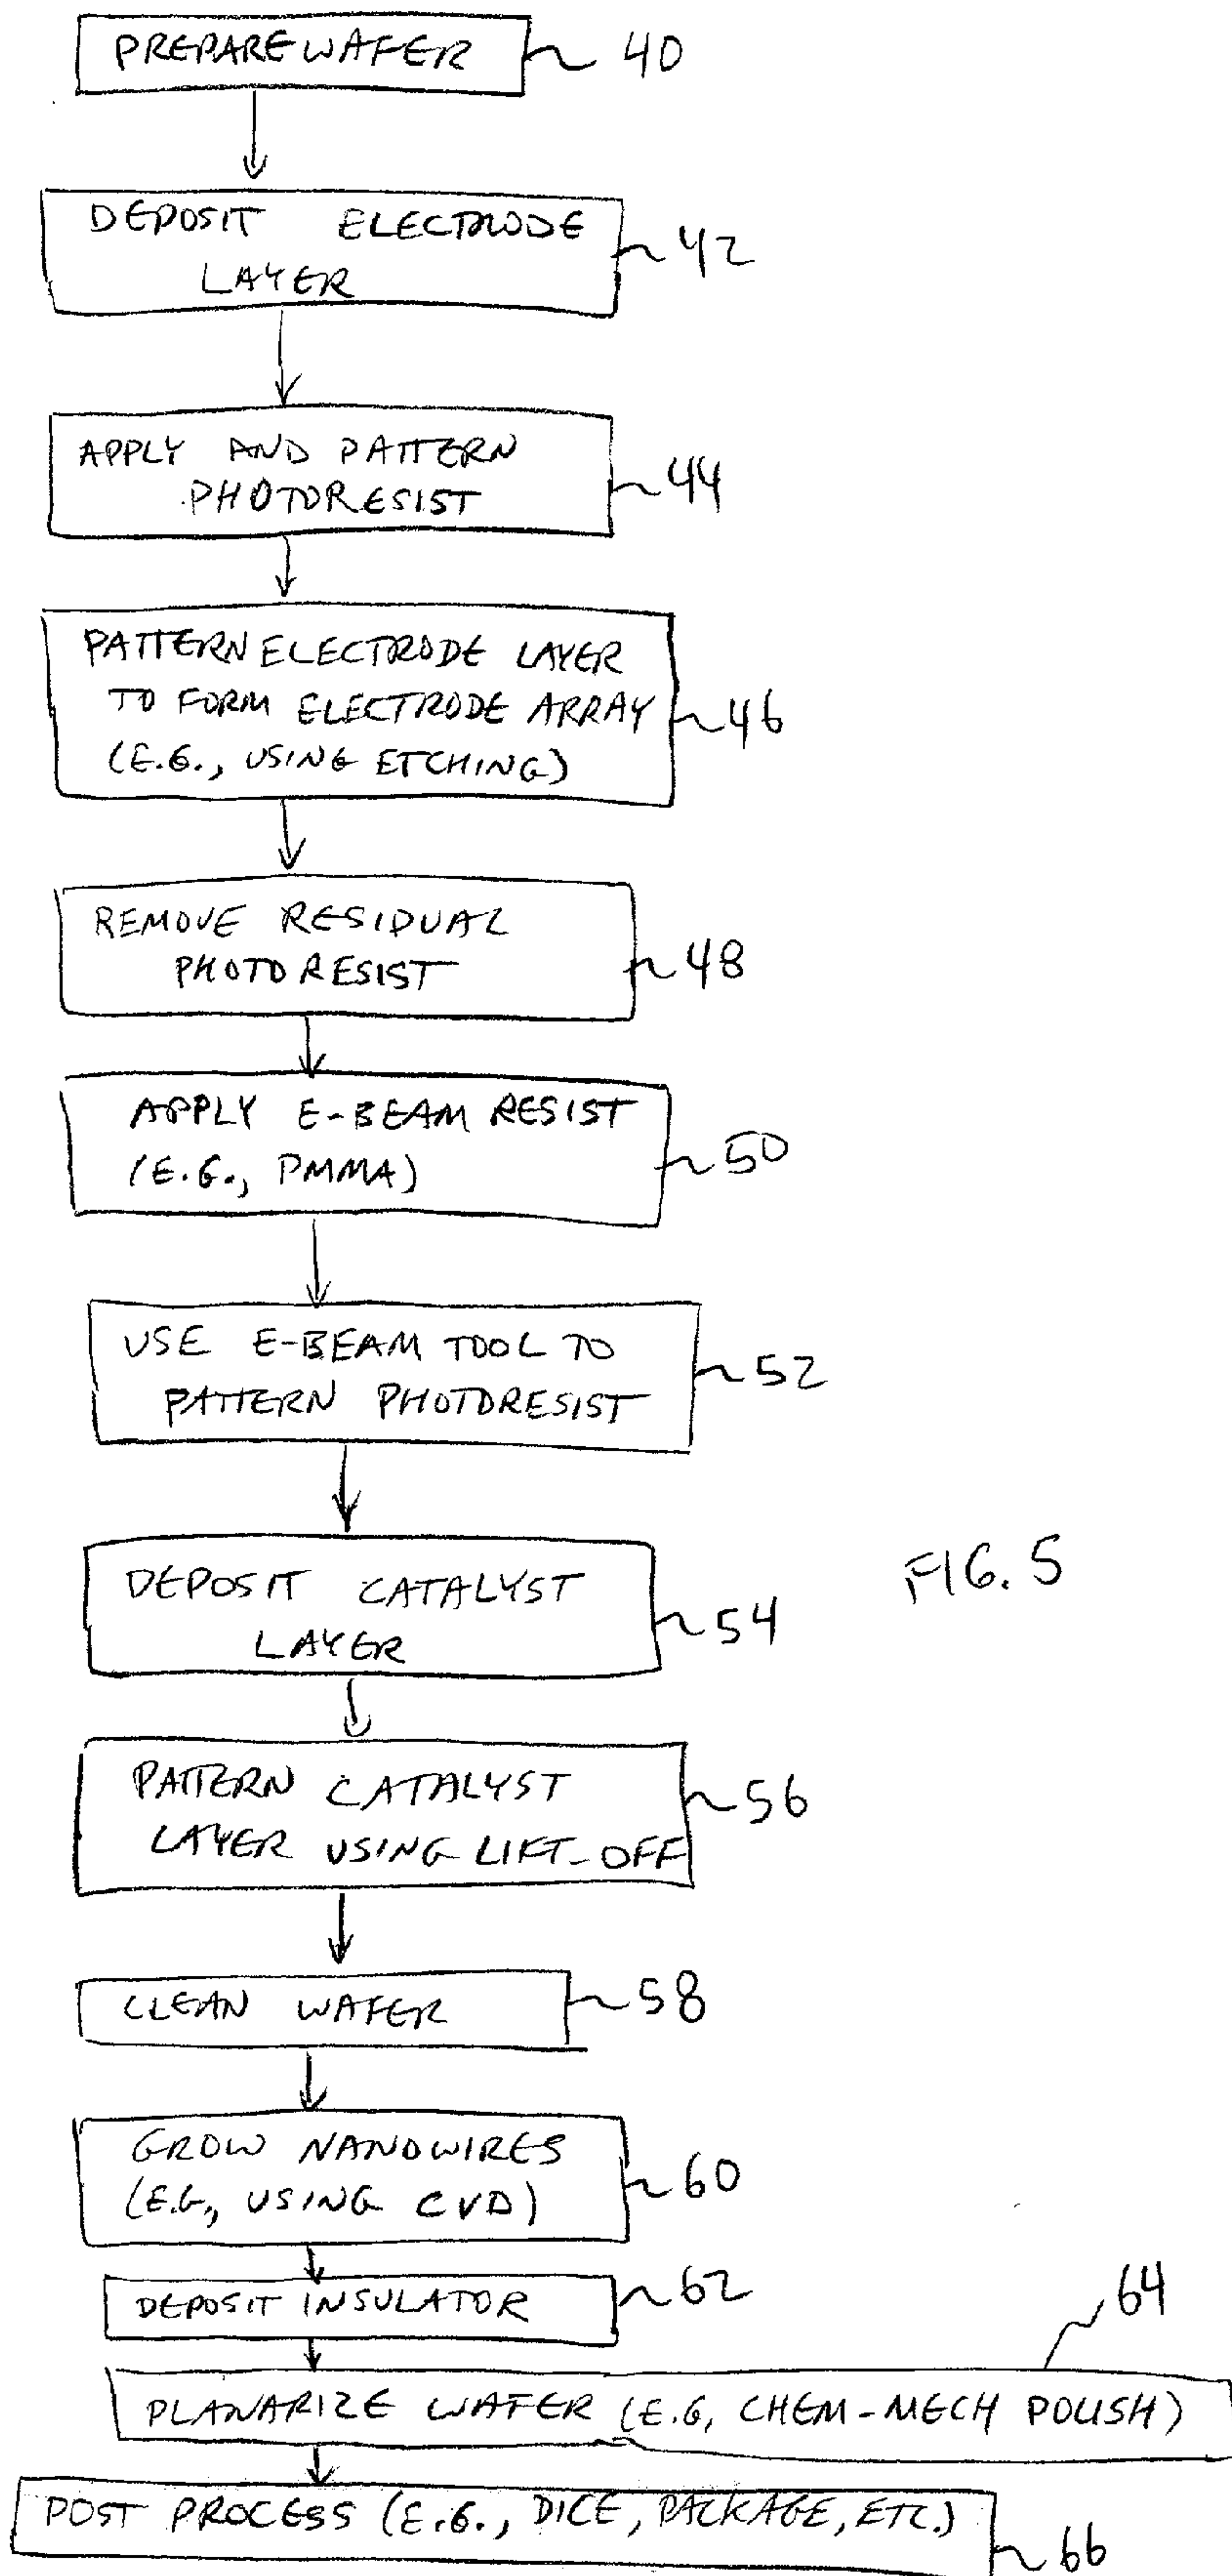 PREPARE WAFER 40
DEPOSIT ELECTRODE
LAYER
42
APPLY AND PATTERN
PHOTORESIST
44
PATTERN ELECTRODE LAYER
TO FORM ELECTRODE ARRAY
(E.G., USING ETCHING)
46
REMOVE RESIDUAL
PHOTORESIST
48
APPLY E-BEAM RESIST
(E.G., PMMA)
50
USE E-BEAM TOOL TO
PATTERN PHOTORESIST
52
DEPOSIT CATALYST
LAYER
54
FIG. 5
PATTERN CATALYST
LAYER USING LIFT-OFF
56
CLEAN WAFER 58
GROW NANOWIRES
(E.G., USING CVD)
60
DEPOSIT INSULATOR 62
64
PLANARIZE WAFER (E.G, CHEM-MECH POLISH)
POST PROCESS (E.G., DICE, PACKAGE, ETC.)
66